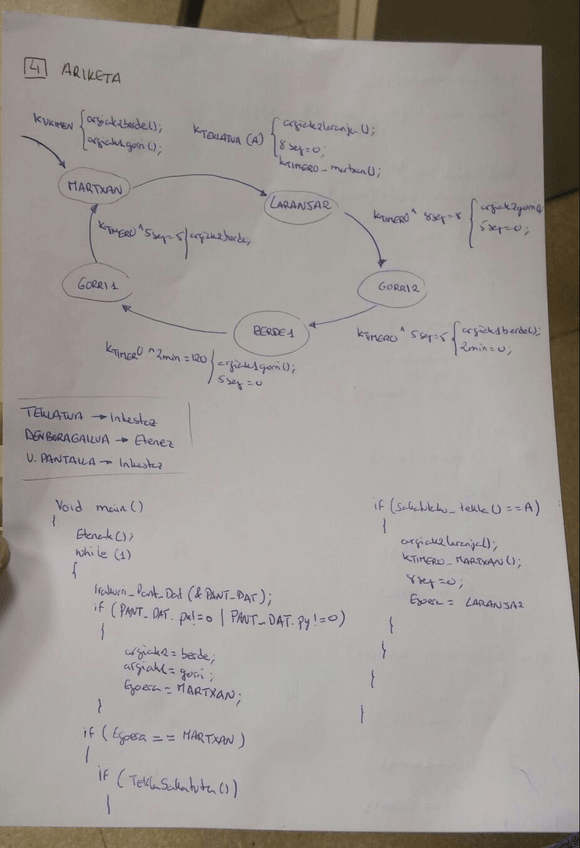 4 ARIKETA
KUKIMEN { argiak2berde();
argiak1gorri();
KTEKLATUA (A) { argiak2laranja();
8seg=0;
KTIMERO_martxan();
MARTXAN
LARANJA2
KTIMERO ^ 8seg=8 {
5seg=0;
KTIMERO ^ 5seg=5 { argiak2berde;
GORRI1
GORRI2
BERDE1
KTIMERO ^ 5seg=5 { argiak1berde();
2min=0;
KTIMERO ^ 2min=120 { argiak1gorri();
5seg=0
TEKLATUA → Inkestaz
DENBORAGAILUA → Etenez
U. PANTAILA → Inkestaz
Void main()
{
Etenak();
while (1)
{
Irakurri_Pant_Dat (& PANT_DAT);
if (PANT_DAT.px!=0 | PANT_DAT.py!=0)
{
argiak2=berde;
argiak1=gorri;
Egoera=MARTXAN;
}
if (Egoera == MARTXAN)
{
if (TeklaSakatuta())
{
if (Sakatutako_tekla() == A)
{
argiak2laranja();
KTIMERO_MARTXAN();
8seg=0;
Egoera = LARANJA2
}
}
}
}